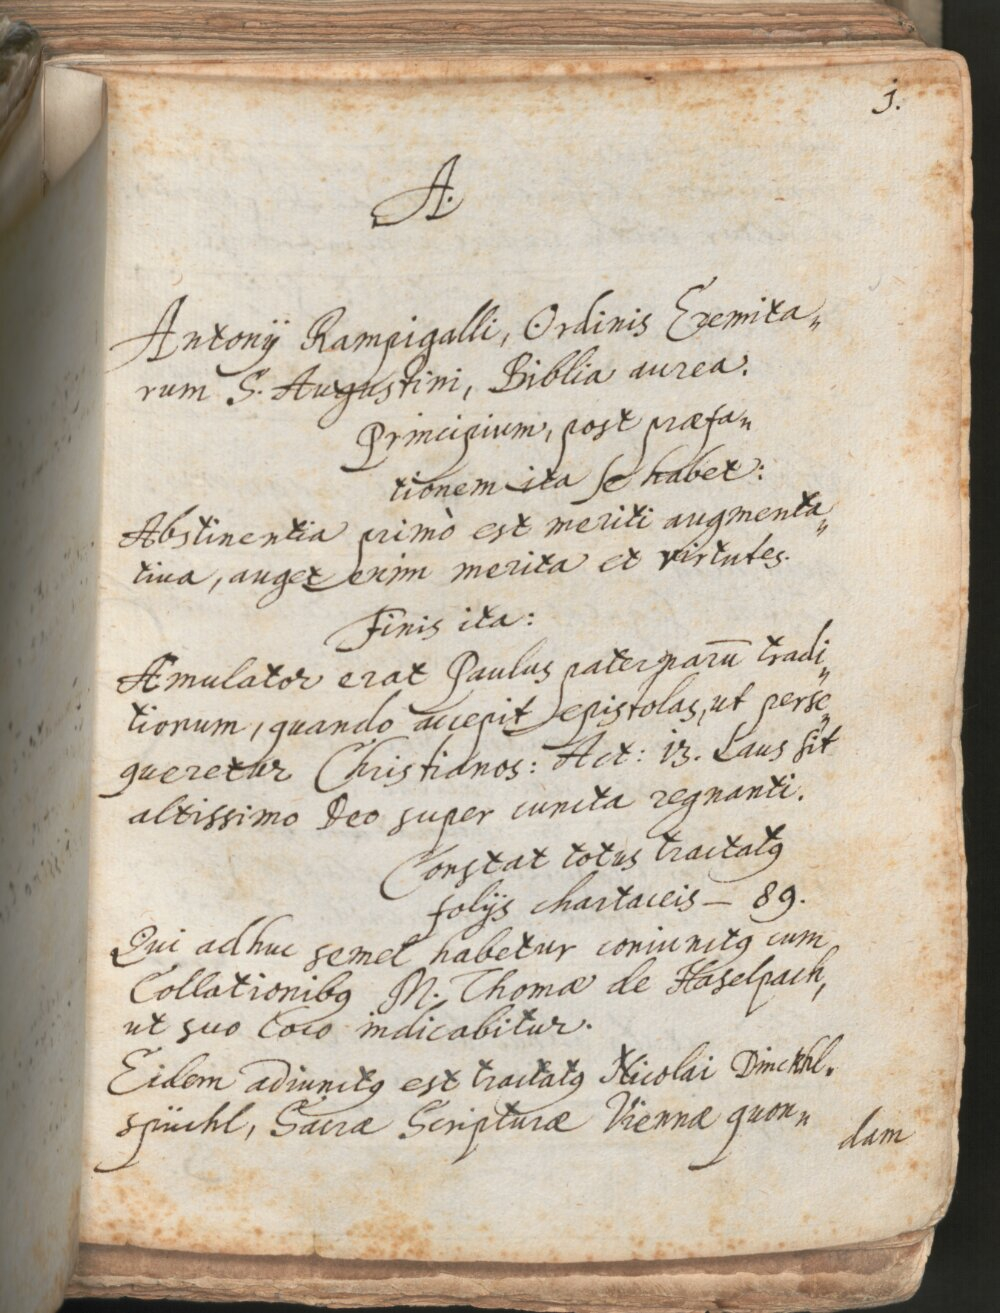 j.
A.
Antonij Rampigalli, Ordinis Eremita„
rum S. Augustini, Biblia aurea.
Principium, post præfa„
tionem ita se habet:
Abstinentia primò est meriti augmenta„
tiua, auget enim merita et virtutes.
Finis ita:
Æmulator erat Paulus paternarū tradi„
tionum, quando accepit epistolas, ut perse„
queretur Christianos: Act: 13. Laus sit
altissimo Deo super cuncta regnanti.
Constat totus tractatꝰ
folijs chartaceis — 89.
Qui adhuc semel habetur coniunctꝰ cum
Collationibꝰ M. Thomæ de Haselpach,
ut suo loco indicabitur.
Eidem adiunctꝰ est tractatꝰ Nicolai Dinckhl„
spüchl, Sacræ Scripturæ Viennæ quon„
dam